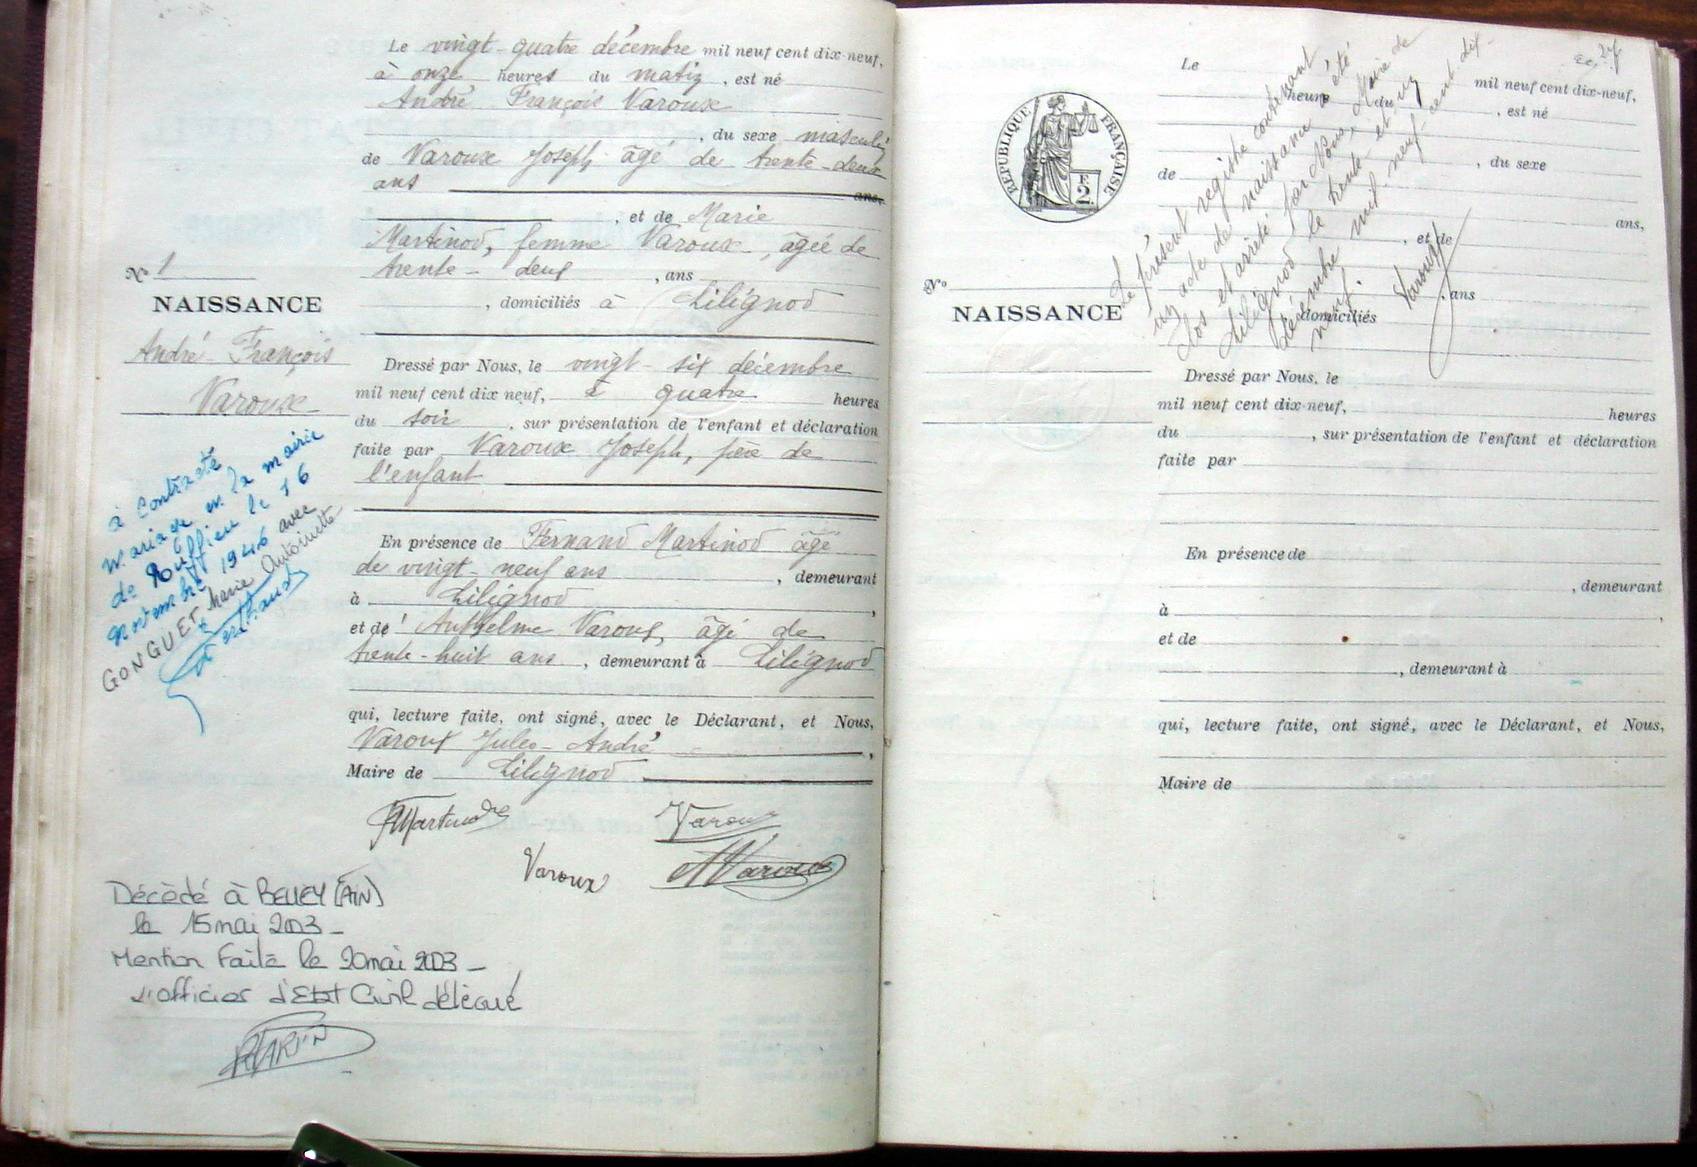 Le vingt-quatre décembre mil neuf cent dix-neuf,
à onze heures du matin, est né
André François Varoux
, du sexe masculin
de Varoux Joseph âgé de trente-deux
ans ans,
, et de Marie
Martinod, femme Varoux, âgée de
trente-deux , ans
, domiciliés à Lilignod
N° 1
NAISSANCE
André François
Varoux
Dressé par Nous, le vingt-six décembre
mil neuf cent dix neuf, à quatre heures
du soir , sur présentation de l'enfant et déclaration
faite par Varoux Joseph, père de
l'enfant
En présence de Fernand Martinod âgé
de vingt-neuf ans , demeurant
à Lilignod ,
et de Anthelme Varoux, âgé de
trente-huit ans , demeurant à Lilignod
qui, lecture faite, ont signé, avec le Déclarant, et Nous,
Varoux Jules-André ,
Maire de Lilignod
à contracté
mariage en la mairie
de Ruffieu le 16
novembre 1946 avec
GONGUET Marie Antoinette
Varoux
Varoux
AVaroux
Décèdé à BELLEY (AIN)
le 15 mai 2003 -
Mention faite le 20 mai 2003 -
L'officier d'Etat Civil délégué
27
RÉPUBLIQUE FRANÇAISE
2
Le
heure du mil neuf cent dix-neuf,
, est né
, du sexe
de
ans,
, et de
, ans
domiciliés
Le présent registre contenant
un acte de naissance a été
clos et arrêté par Nous, Maire de
Lilignod le trente-et-un
décembre mil-neuf-cent-dix-
neuf.
Varoux
N°
NAISSANCE
Dressé par Nous, le
mil neuf cent dix-neuf, heures
du , sur présentation de l'enfant et déclaration
faite par
En présence de
, demeurant
à ,
et de
, demeurant à
qui, lecture faite, ont signé, avec le Déclarant, et Nous,
Maire de